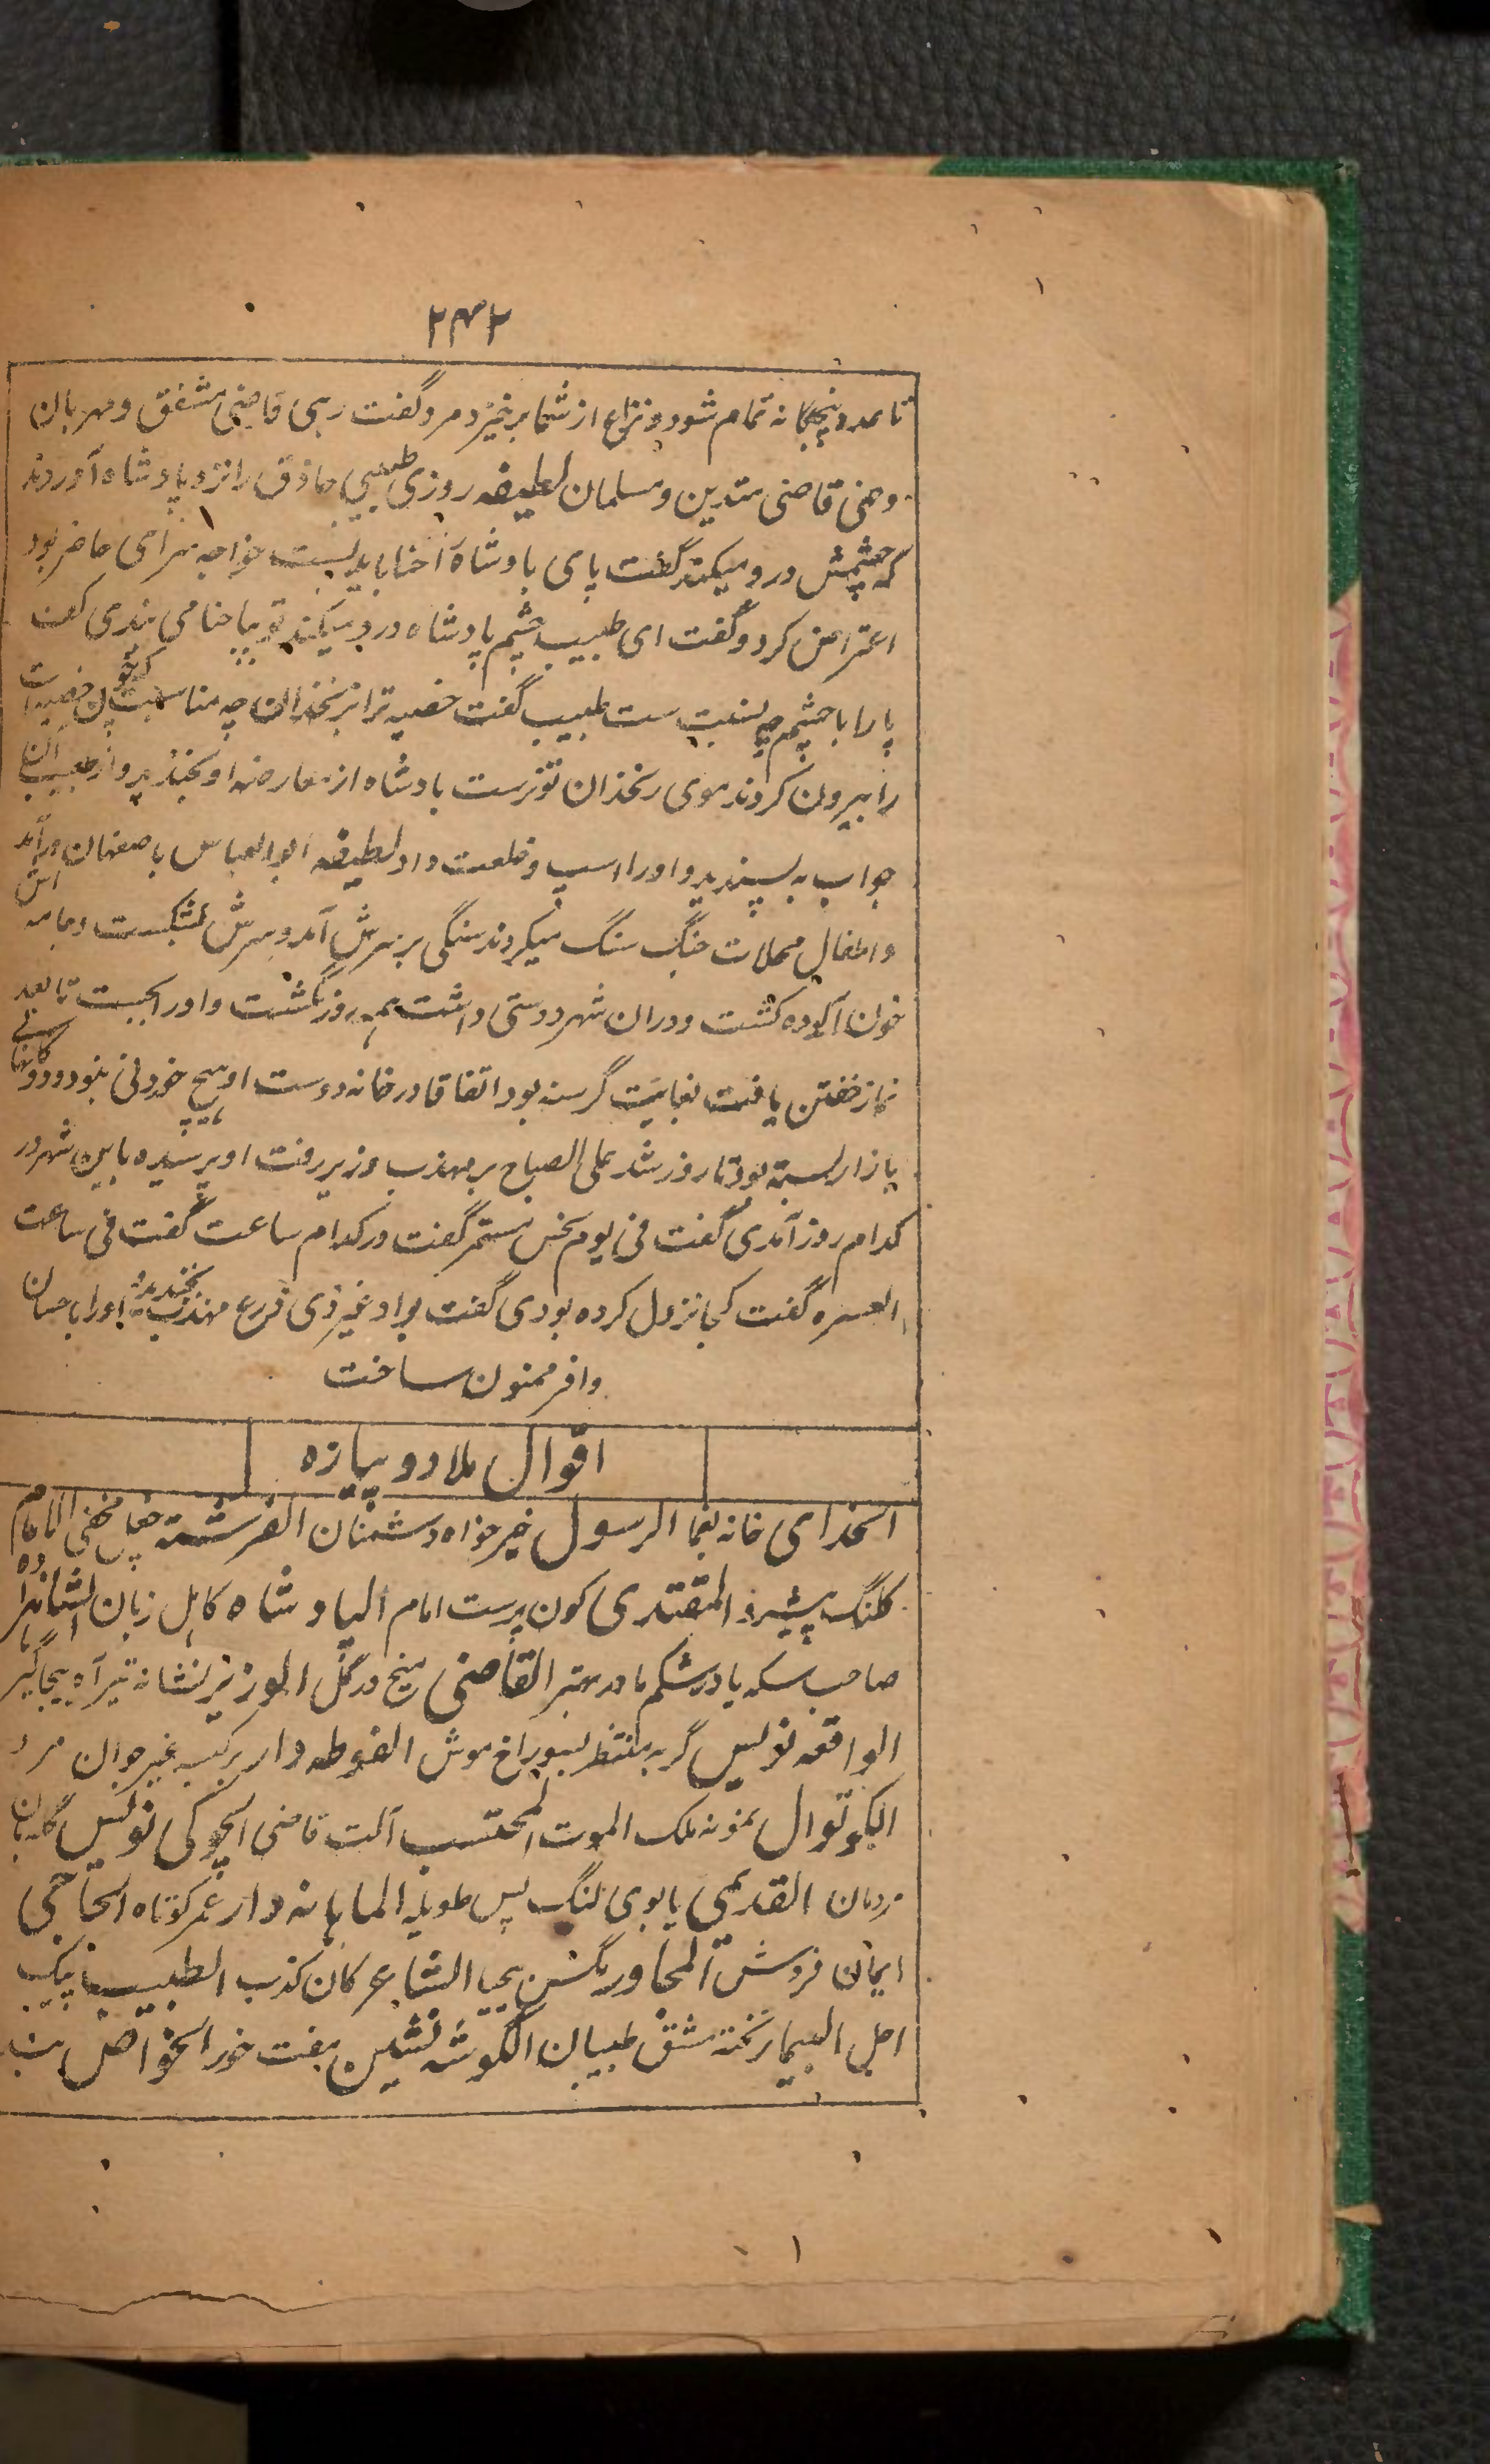 ۲۴۲
تا عدد پنجگانه تمام شود و نزاع از شما برخیزد مرد گفت زهی قاضی مشفق و مهربان
وخهی قاضی متدین و مسلمان لطیفه روزی طبیبی حاذق را نزد پادشاه آوردند
که چشمش درد میکند گفت پای بادشاه را حنا باید بست خواجه سرای حاضر بود
اعتراض کرد و گفت ای طبیب چشم پادشاه درد میکند تو بپا حنا می بندی گفت
پا را با چشم چه نسبت ست طبیب گفت خصیه ترا بزنخدان چه مناسبت که چون خصیه ات
را بیرون کردند موی زنخدان تو نرست بادشاه از معارضه او بخندید و از طبیب آن
جواب به پسندید و او را اسپ و خلعت داد لطیفه ابو العباس باصفهان درآمد
و اطفال محلات جنگ سنگ میکردند سنگی بر سرش آمد و سرش بشکست و جامه اش
خون آلوده گشت و در ان شهر دوستی داشت همه روز بگشت و او را بجست تا بعد
نماز خفتن یافت بغایت گرسنه بود اتفاقا در خانه دوست او هیچ خوردنی نبود و دوکانهای
بازار بسته بود تا روز شد علی الصباح بر مهذب وزیر رفت او پرسیده باین شهر در
کدام روز آمدی گفت فی یوم نحس مستمر گفت در کدام ساعت گفت فی ساعت
العسره گفت کجا نزول کرده بودی گفت بواد غیر ذی زرع مهذب بخندید و او را باحسان
وافر ممنون ساخت
اقوال ملا دو پیازه
الخدای خانه یغما الرسول خیر خواه دشمنان الفرشته مخفی الامام
کلنگ پیشرو المقتدی کون پرست امام البادشاه کاهل زبان الشاهزاده
صاحب سکه یا در شکم مادر بهتر القاضی میخ در گل الوزیر نشانه تیر آه بیچارگان
الواقعه نویس گربه منتظر بسوراخ موش الفوطه دار برکیسه غیر جوان مرد
الکوتوال نمونه ملک الموت المحتسب آلت قاضی الچوکی نویس نگهبان
مردمان القدیمی یابوی لنگ پس طویله الماهانه دار عمر کوتاه الحاجی
ایمان فروش المجاور مگس بیحیا الشاعر کان کذب الطبیب پیک
اجل البیمار تخته مشق طبیبان الگوشه نشین مفت خور